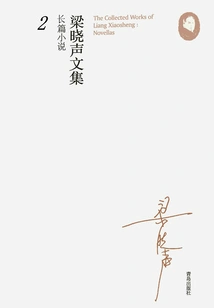 The Collected Works of
Liang Xiaosheng:
Novellas
梁晓声文集
长篇小说
2
梁晓声
青岛出版社